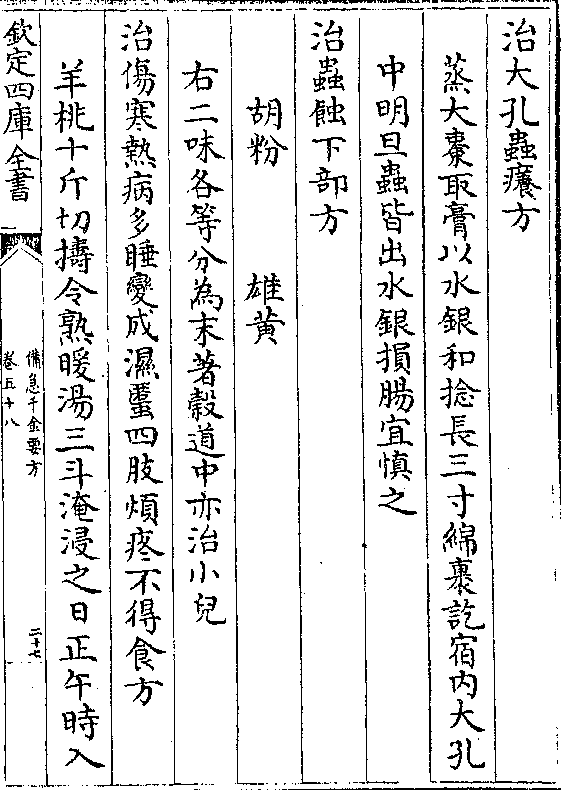 治大孔蟲癢方
蒸大棗取膏以水銀和捻長三寸綿裹訖宿内大孔
中明旦蟲皆出水銀損腸宜慎之
治蟲蝕下部方
胡粉　雄黄
右二味各等分為末著穀道中亦治小兒
治傷寒熱病多睡變成濕䘌四肢煩疼不得食方
羊桃十斤切擣令熟暖湯三斗淹浸之日正午時入
欽定四庫全書
備急千金要方
卷五十八
二十七